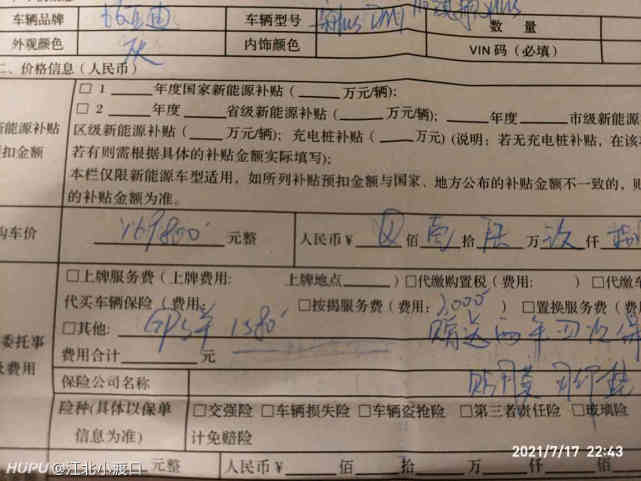 车辆品牌 比亚迪 车辆型号 plus 数量
外观颜色 灰 内饰颜色 VIN码（必填）
二、价格信息（人民币）
□1 年度国家新能源补贴（ 万元/辆）；
□2 年度 省级新能源补贴（ 万元/辆）； 年度 市级新能源
能源补贴 区级新能源补贴（ 万元/辆）； 充电桩补贴（ 万元）(说明：若无充电桩补贴，在该
扣金额 若有则需根据具体的补贴金额实际填写)；
本栏仅限新能源车型适用，如所列补贴预扣金额与国家、地方公布的补贴金额不一致的，则
的补贴金额为准。
购车价 169800 元整 人民币¥ 佰 拾 陆 万 仟
□上牌服务费（上牌费用： 上牌地点 ）□代缴购置税（费用： ）□代缴
代买车辆保险（费用： □按揭服务费（费用：3000 ）□置换服务费（费
委托事 □其他： GPS 1380 赠送
及费用 费用合计 元
保险公司名称 贴膜
险种（具体以保单 □交强险 □车辆损失险 □车辆盗抢险 □第三者责任险 □玻璃险
信息为准） 计免赔险
2021/7/17 22:43
元整 人民币¥ 佰 拾 万 仟 佰
HUPU @江北小渡口